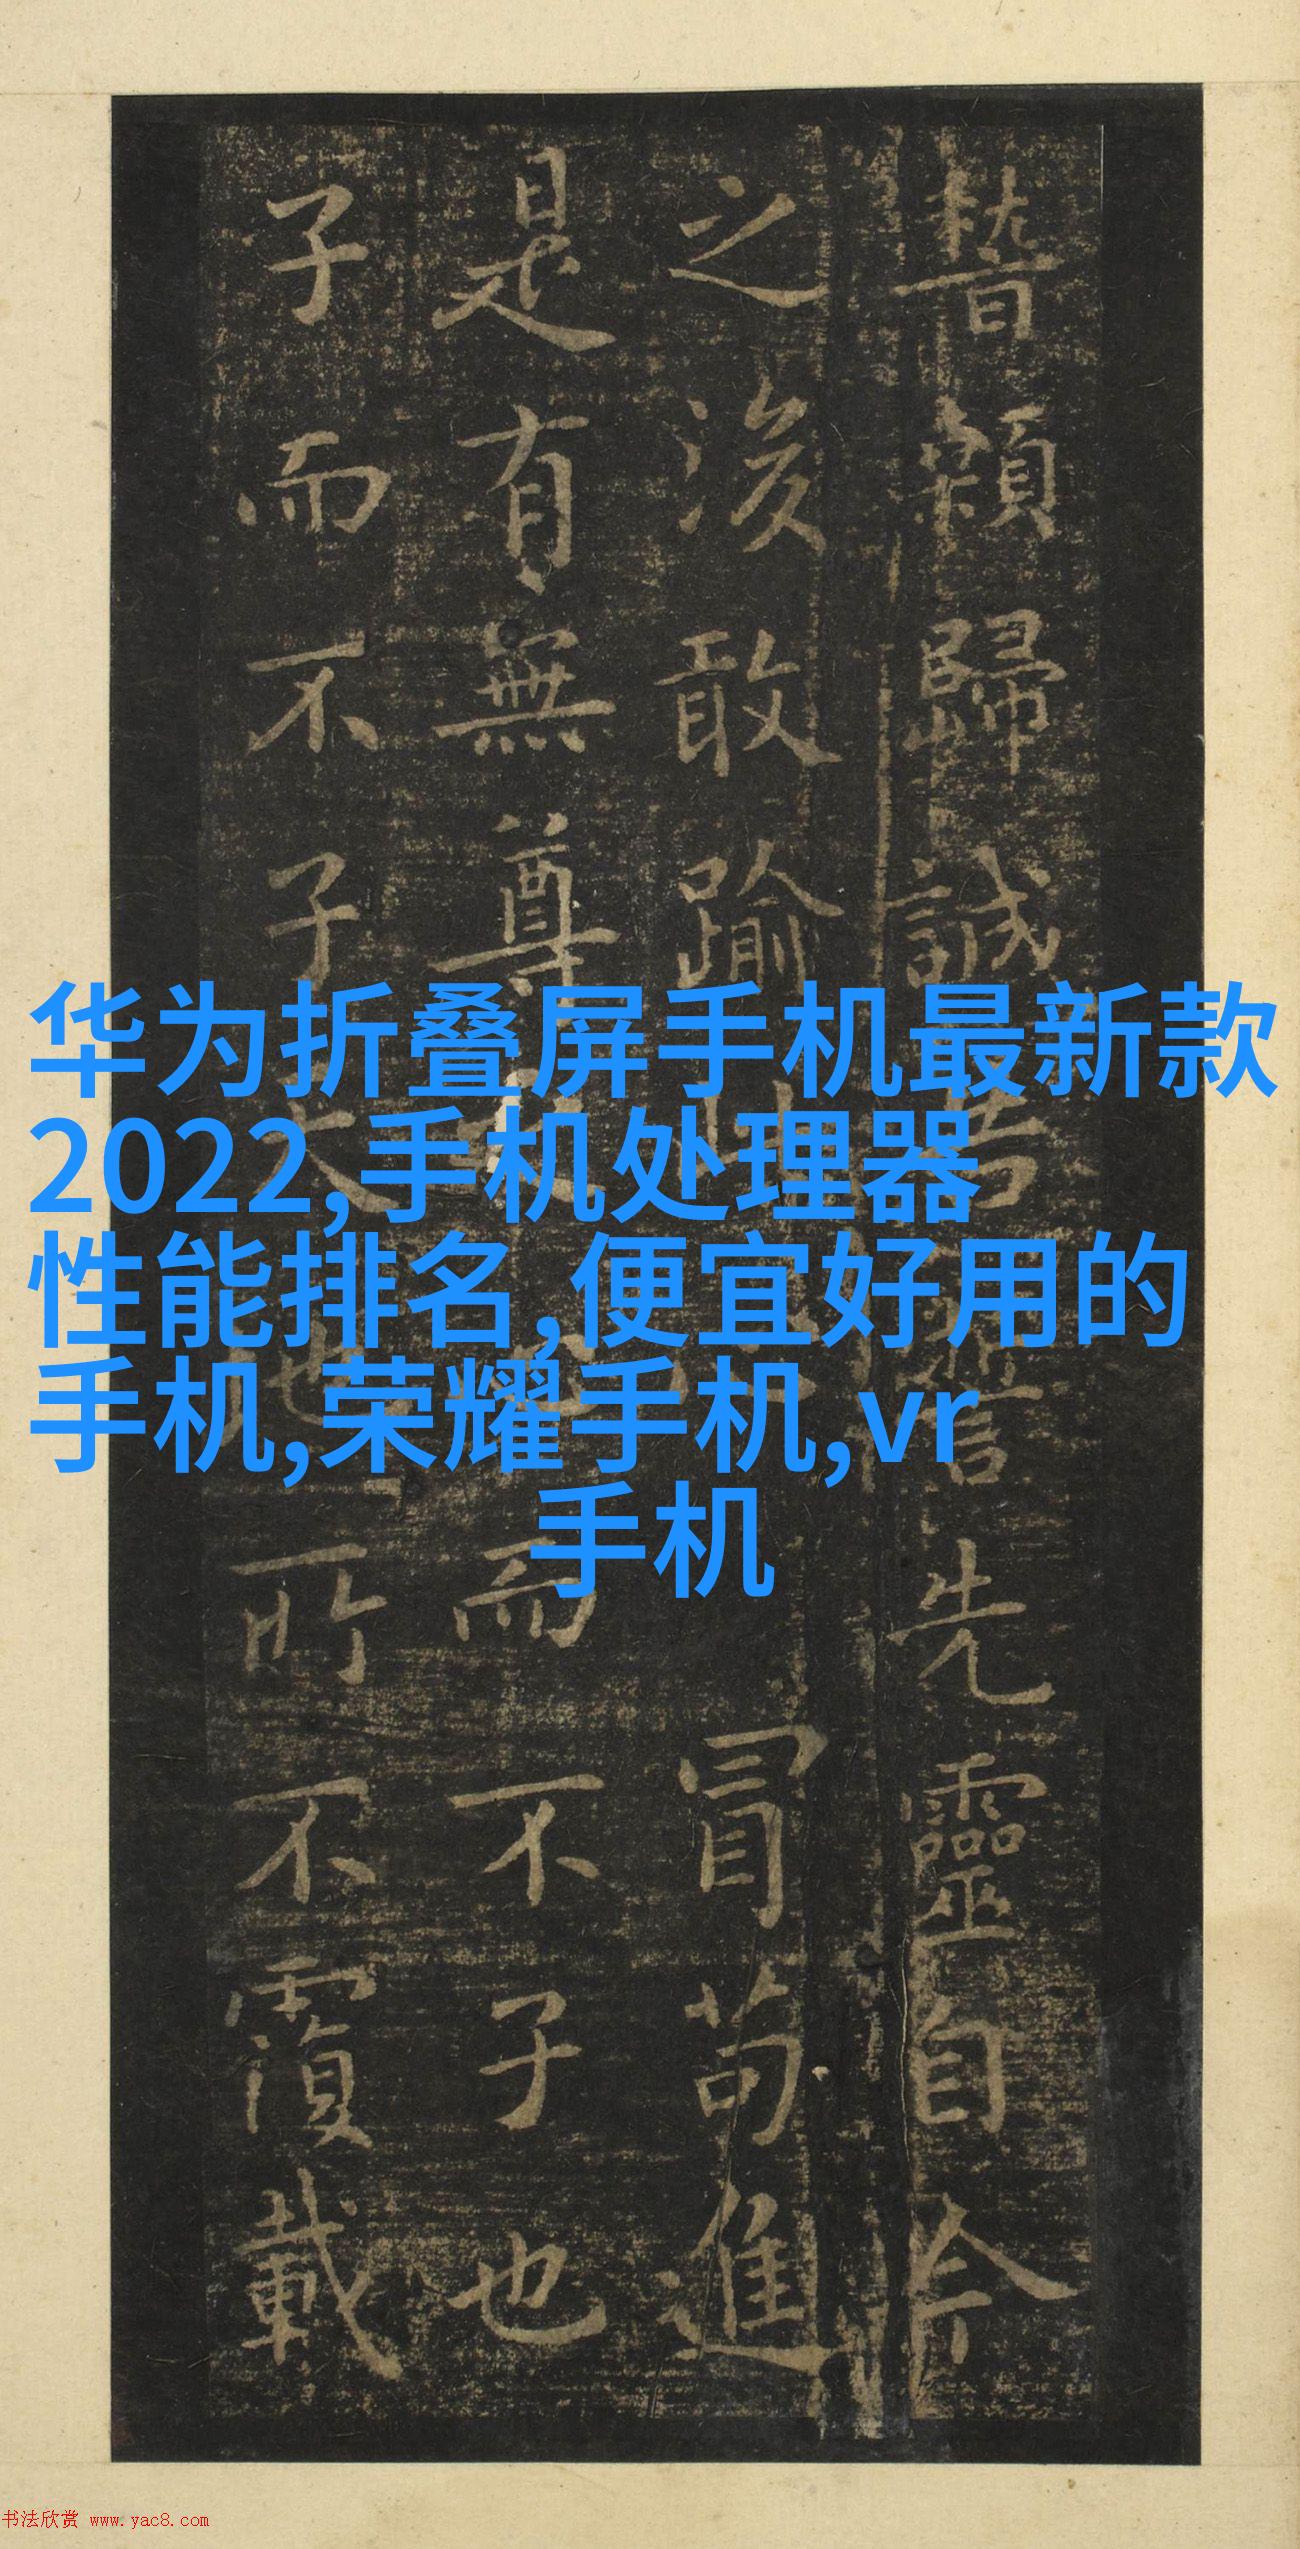 稽顙歸誠告誓先靈自今
之後敢踰冒苟進
是有無尊而不子也
子而不子天地所不覆載
华为折叠屏手机最新款
2022,手机处理器
性能排名,便宜好用的
手机,荣耀手机,vr
手机
书法欣赏 www.yac8.com